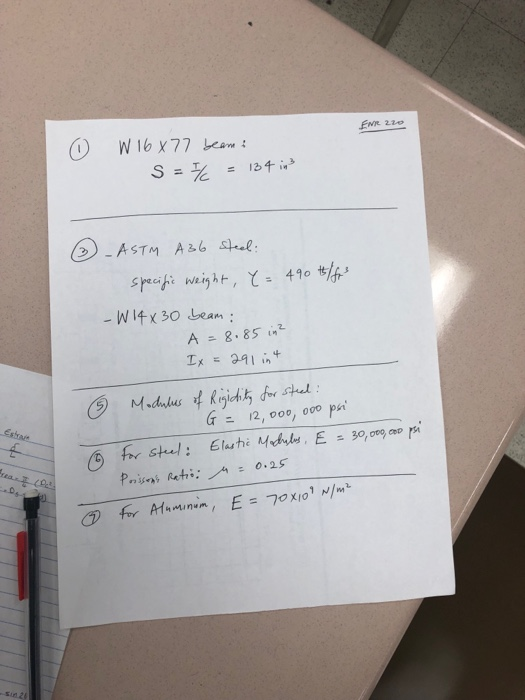 ENR 220
① W16 X77 beam:
S = I/C = 134 in³
③ - ASTM A36 Steel:
specific weight, γ = 490 lb/ft³
- W14 x 30 beam:
A = 8.85 in²
Ix = 291 in⁴
⑤ Modulus of Rigidity for steel:
G = 12,000,000 psi
⑥ For steel: Elastic Modulus, E = 30,000,000 psi
Poisson's Ratio: μ = 0.25
⑦ For Aluminum, E = 70x10⁹ N/m²